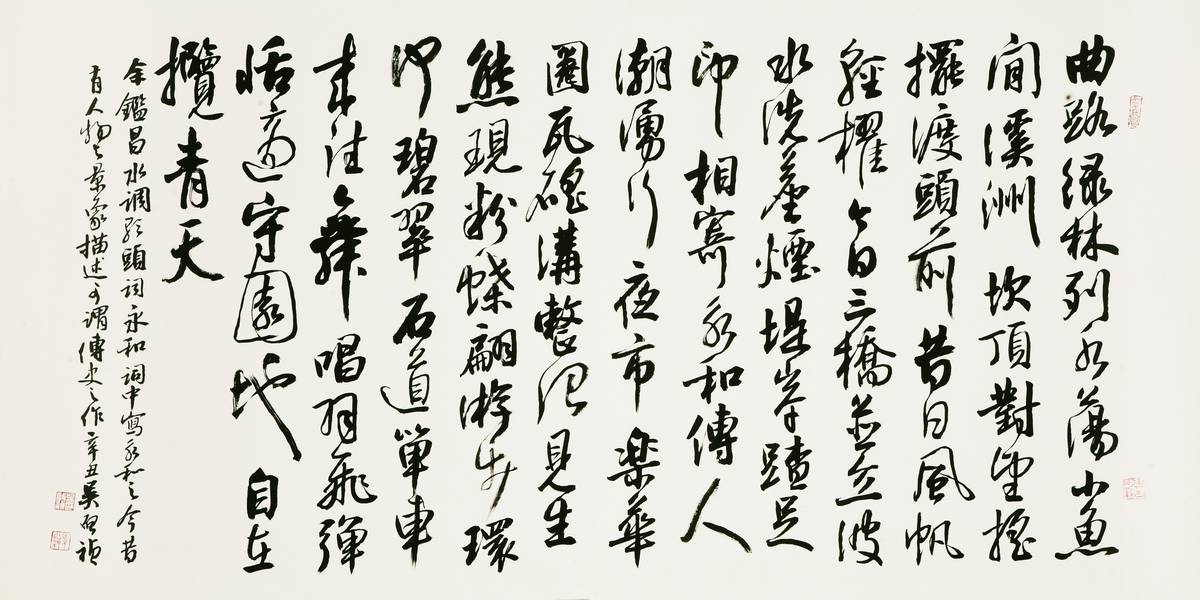 曲路綠林列水蕩小魚
間溪洲坎頂對望搖
擺渡頭前昔日風帆
經櫂今日三橋並立波
水洗塵煙堤岸蹟足
印相寄永和傳人
潮湧行夜市樂華
圈瓦磘溝整治見生
態現粉蝶翩游步環
河碧翠石道單車
來往舞唱羽飛彈
恬適守園地自在
攬青天
余鑑昌水調歌頭詞永和詞中寫永和之今昔
有人物之景象描述可謂傳史之作辛丑吳啟禎